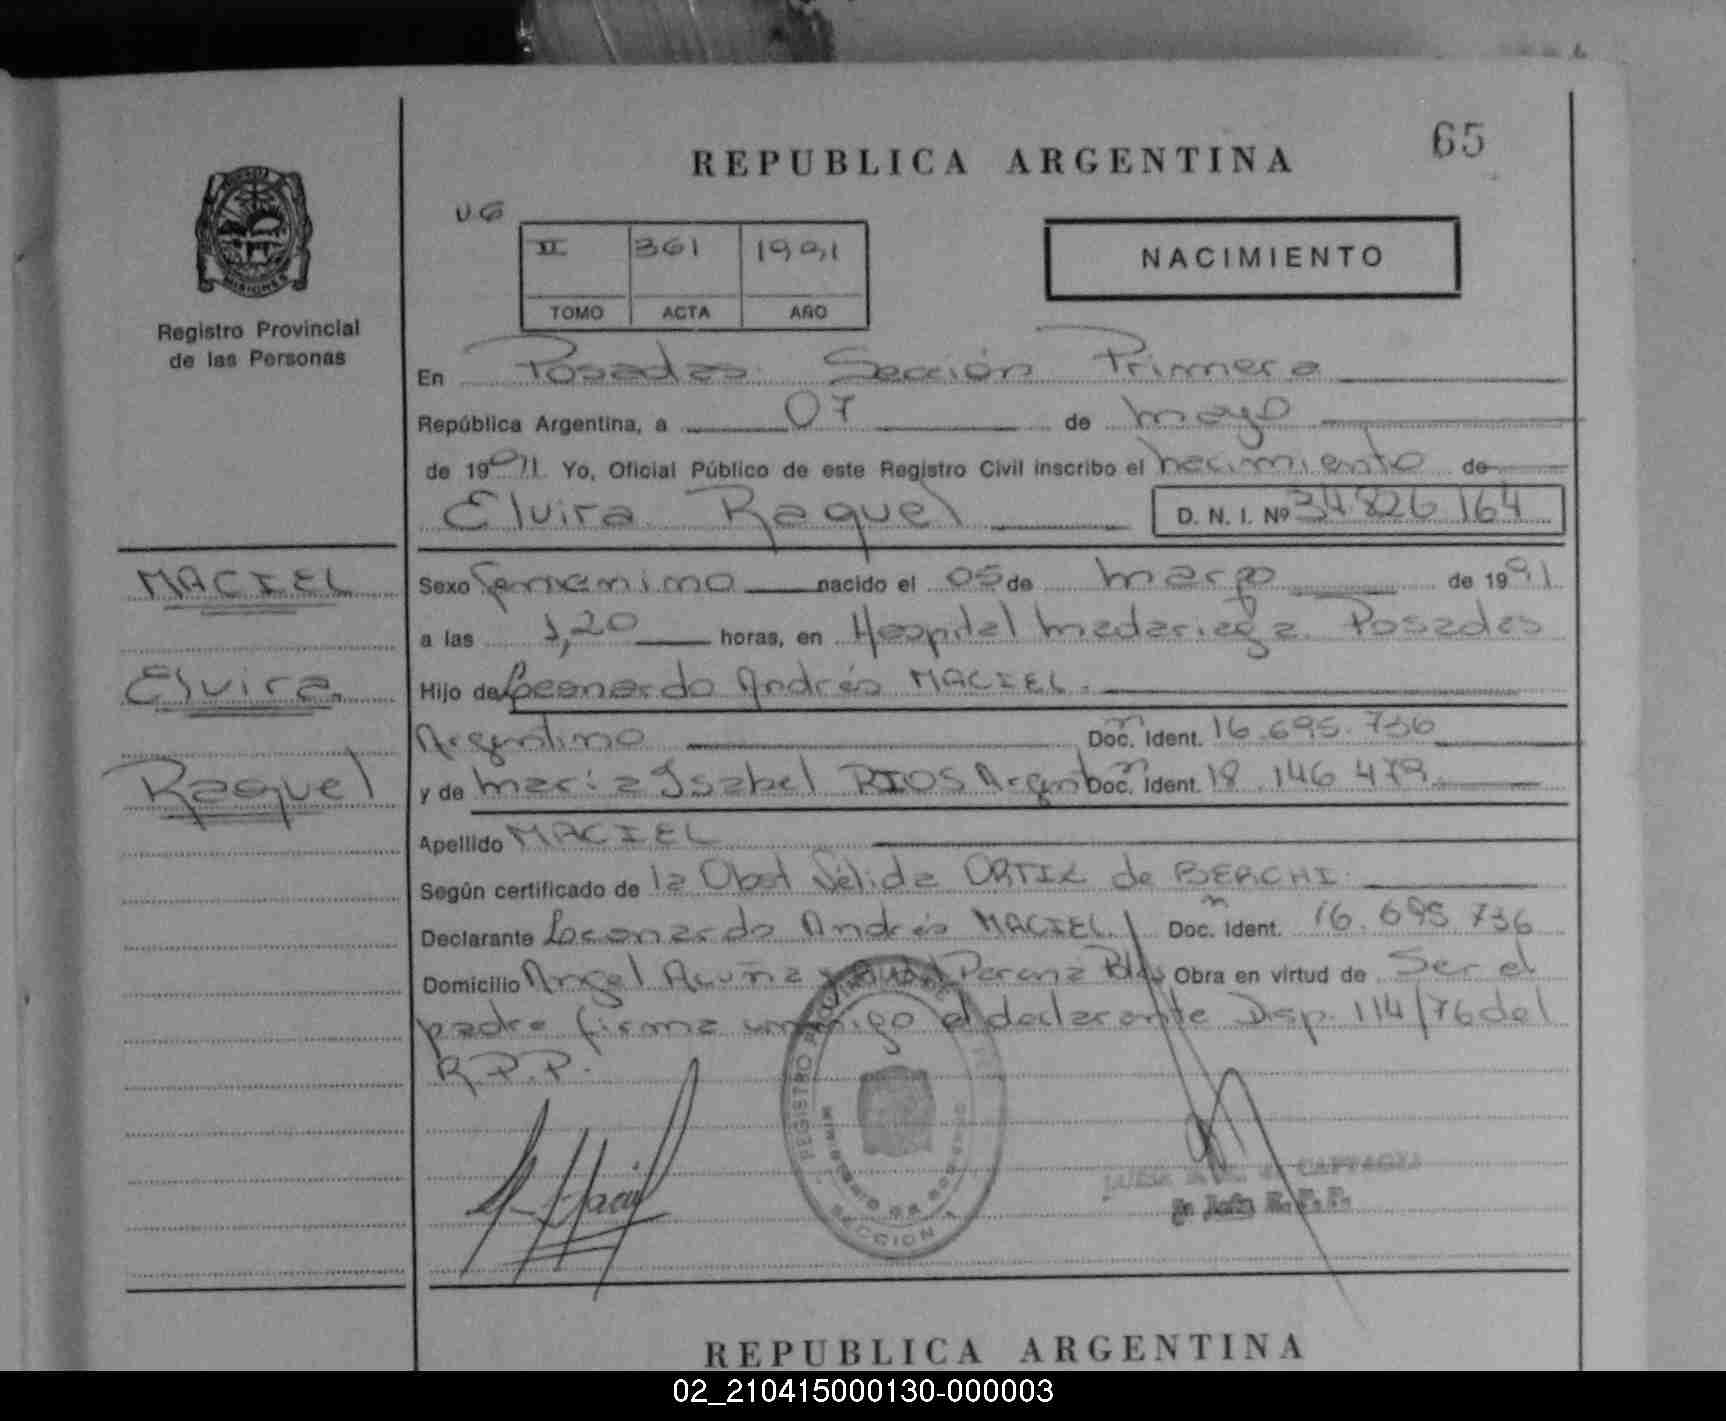 65
REPUBLICA ARGENTINA
MISIONES
Registro Provincial
de las Personas
UG
II 361 1991
TOMO ACTA AÑO
NACIMIENTO
En Posadas Sección Primera
República Argentina, a 07 de mayo
de 1991. Yo, Oficial Público de este Registro Civil inscribo el nacimiento de
Elvira Raquel D. N. I. Nº 34826164
MACIEL
Elvira
Raquel
Sexo femenino nacido el 05 de marzo de 1991
a las 1,20 horas, en Hospital Madariaga. Posadas
Hijo de Leonardo Andrés MACIEL.
Argentino Doc. Ident. 16.695.736
y de María Isabel RIOS Argent Doc. Ident. 18.146.479
Apellido MACIEL
Según certificado de la Obst Nélida ORTIZ de BERCHI.
Declarante Leonardo Andrés MACIEL Doc. Ident. 16.695.736
Domicilio Angel Acuña y Paraná Obra en virtud de Ser el
padre firma conmigo el declarante Disp. 114/76 del
R.P.P.
REGISTRO PROVINCIAL DE
MINISTERIO DE GOBIERNO
SECCION 1
de
Jefe R. P. P.
REPUBLICA ARGENTINA
02_210415000130-000003